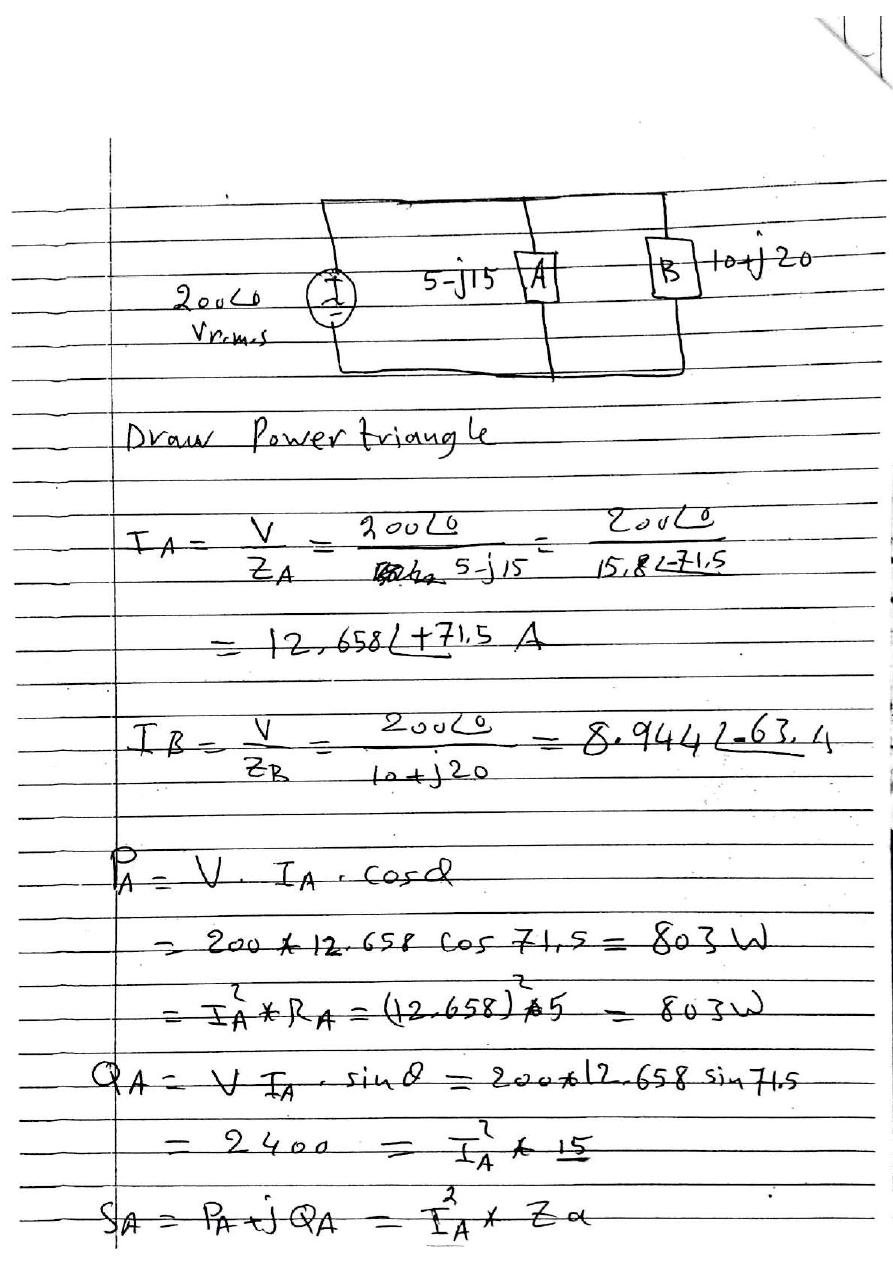 4
200∠0
Vr.m.s
5-j15 A
B 10+j20
Draw Power triangle
IA = V/ZA = 200∠0/5-j15 = 200∠0/15.8∠-71.5
= 12.658∠+71.5 A
IB = V/ZB = 200∠0/10+j20 = 8.944∠-63.4
PA = V . IA . cosθ
= 200 * 12.658 cos 71.5 = 803 W
= IA² * RA = (12.658)² * 5 = 803 W
QA = V IA . sinθ = 200*12.658 sin 71.5
= 2400 = IA² * 15
SA = PA + j QA = IA² * Za